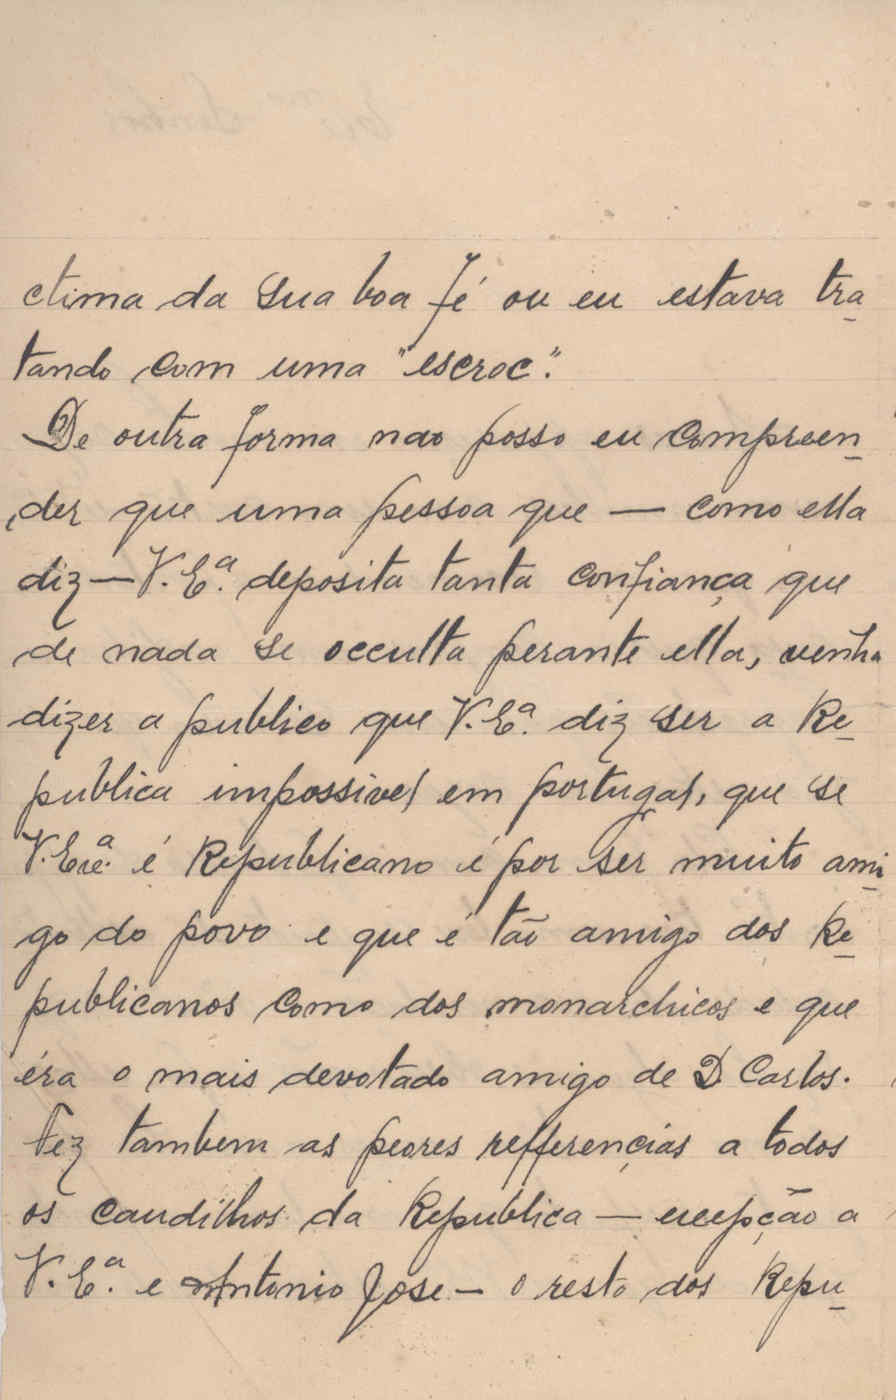 ctima da sua boa fé ou eu estava tra
tando com uma "escroc".
De outra forma nao posso eu compreen
der que uma pessoa que — como ella
diz — V. Eª. deposita tanta confiança que
de nada se occulta perante ella, venha
dizer a publico que V. Eª. diz ser a Re
publica impossivel em portugal, que se
V. Exª. é Republicano é por ser muito ami
go do povo e que é tão amigo dos Re
publicanos como dos monarchicos e que
éra o mais devotado amigo de D. Carlos.
Fez tambem as peores refferencias a todos
os caudilhos da Republica — excepção a
V. Eª. e Antonio Jose — o resto dos Repu